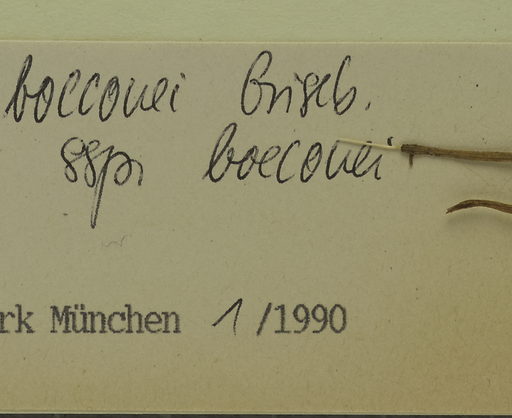 bocconei Griseb.
ssp. bocconei
rk München 1/1990